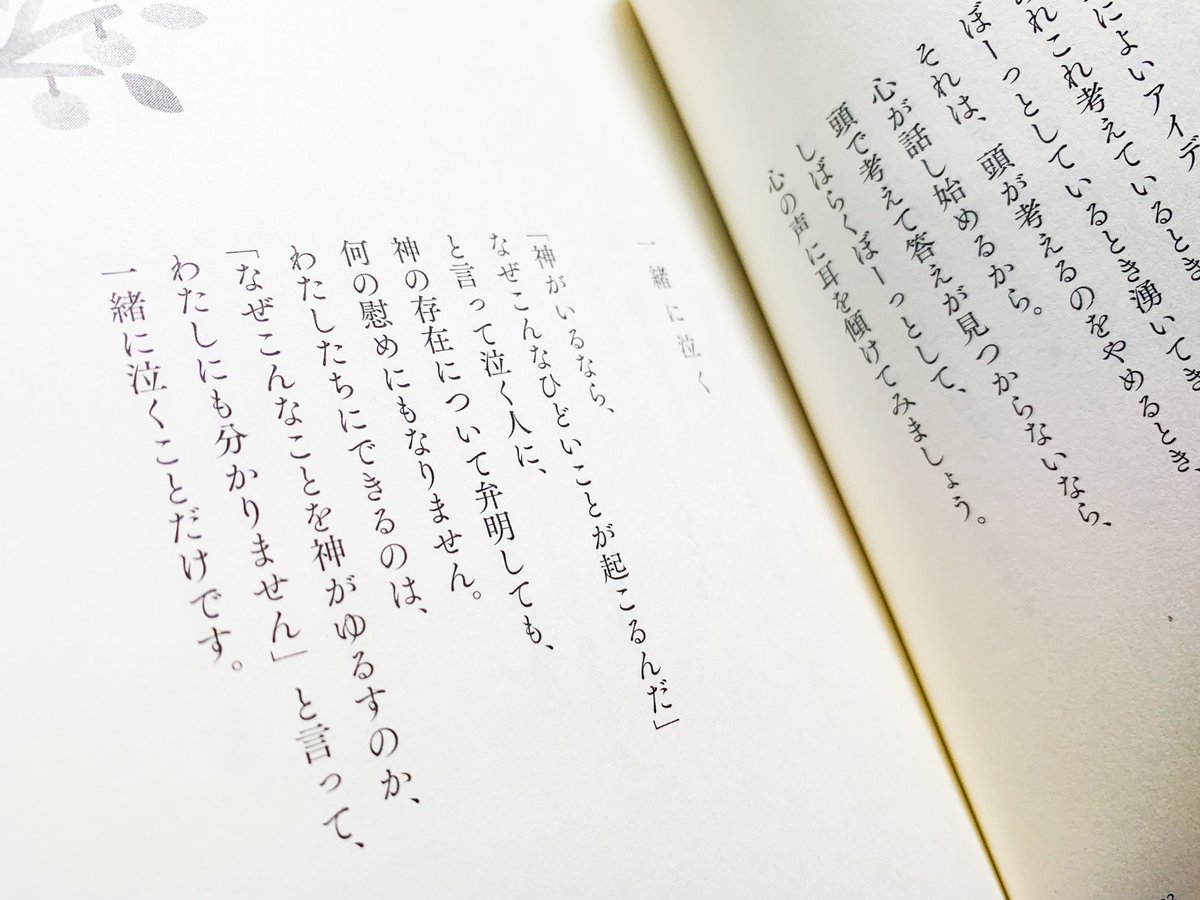 によいアイデ
れこれ考えているとき
ぼーっとしているとき湧いてき
それは、頭が考えるのをやめるとき、
心が話し始めるから。
頭で考えて答えが見つからないなら、
しばらくぼーっとして、
心の声に耳を傾けてみましょう。
一緒に泣く
「神がいるなら、
なぜこんなひどいことが起こるんだ」
と言って泣く人に、
神の存在について弁明しても、
何の慰めにもなりません。
わたしたちにできるのは、
「なぜこんなことを神がゆるすのか、
わたしにも分かりません」と言って、
一緒に泣くことだけです。